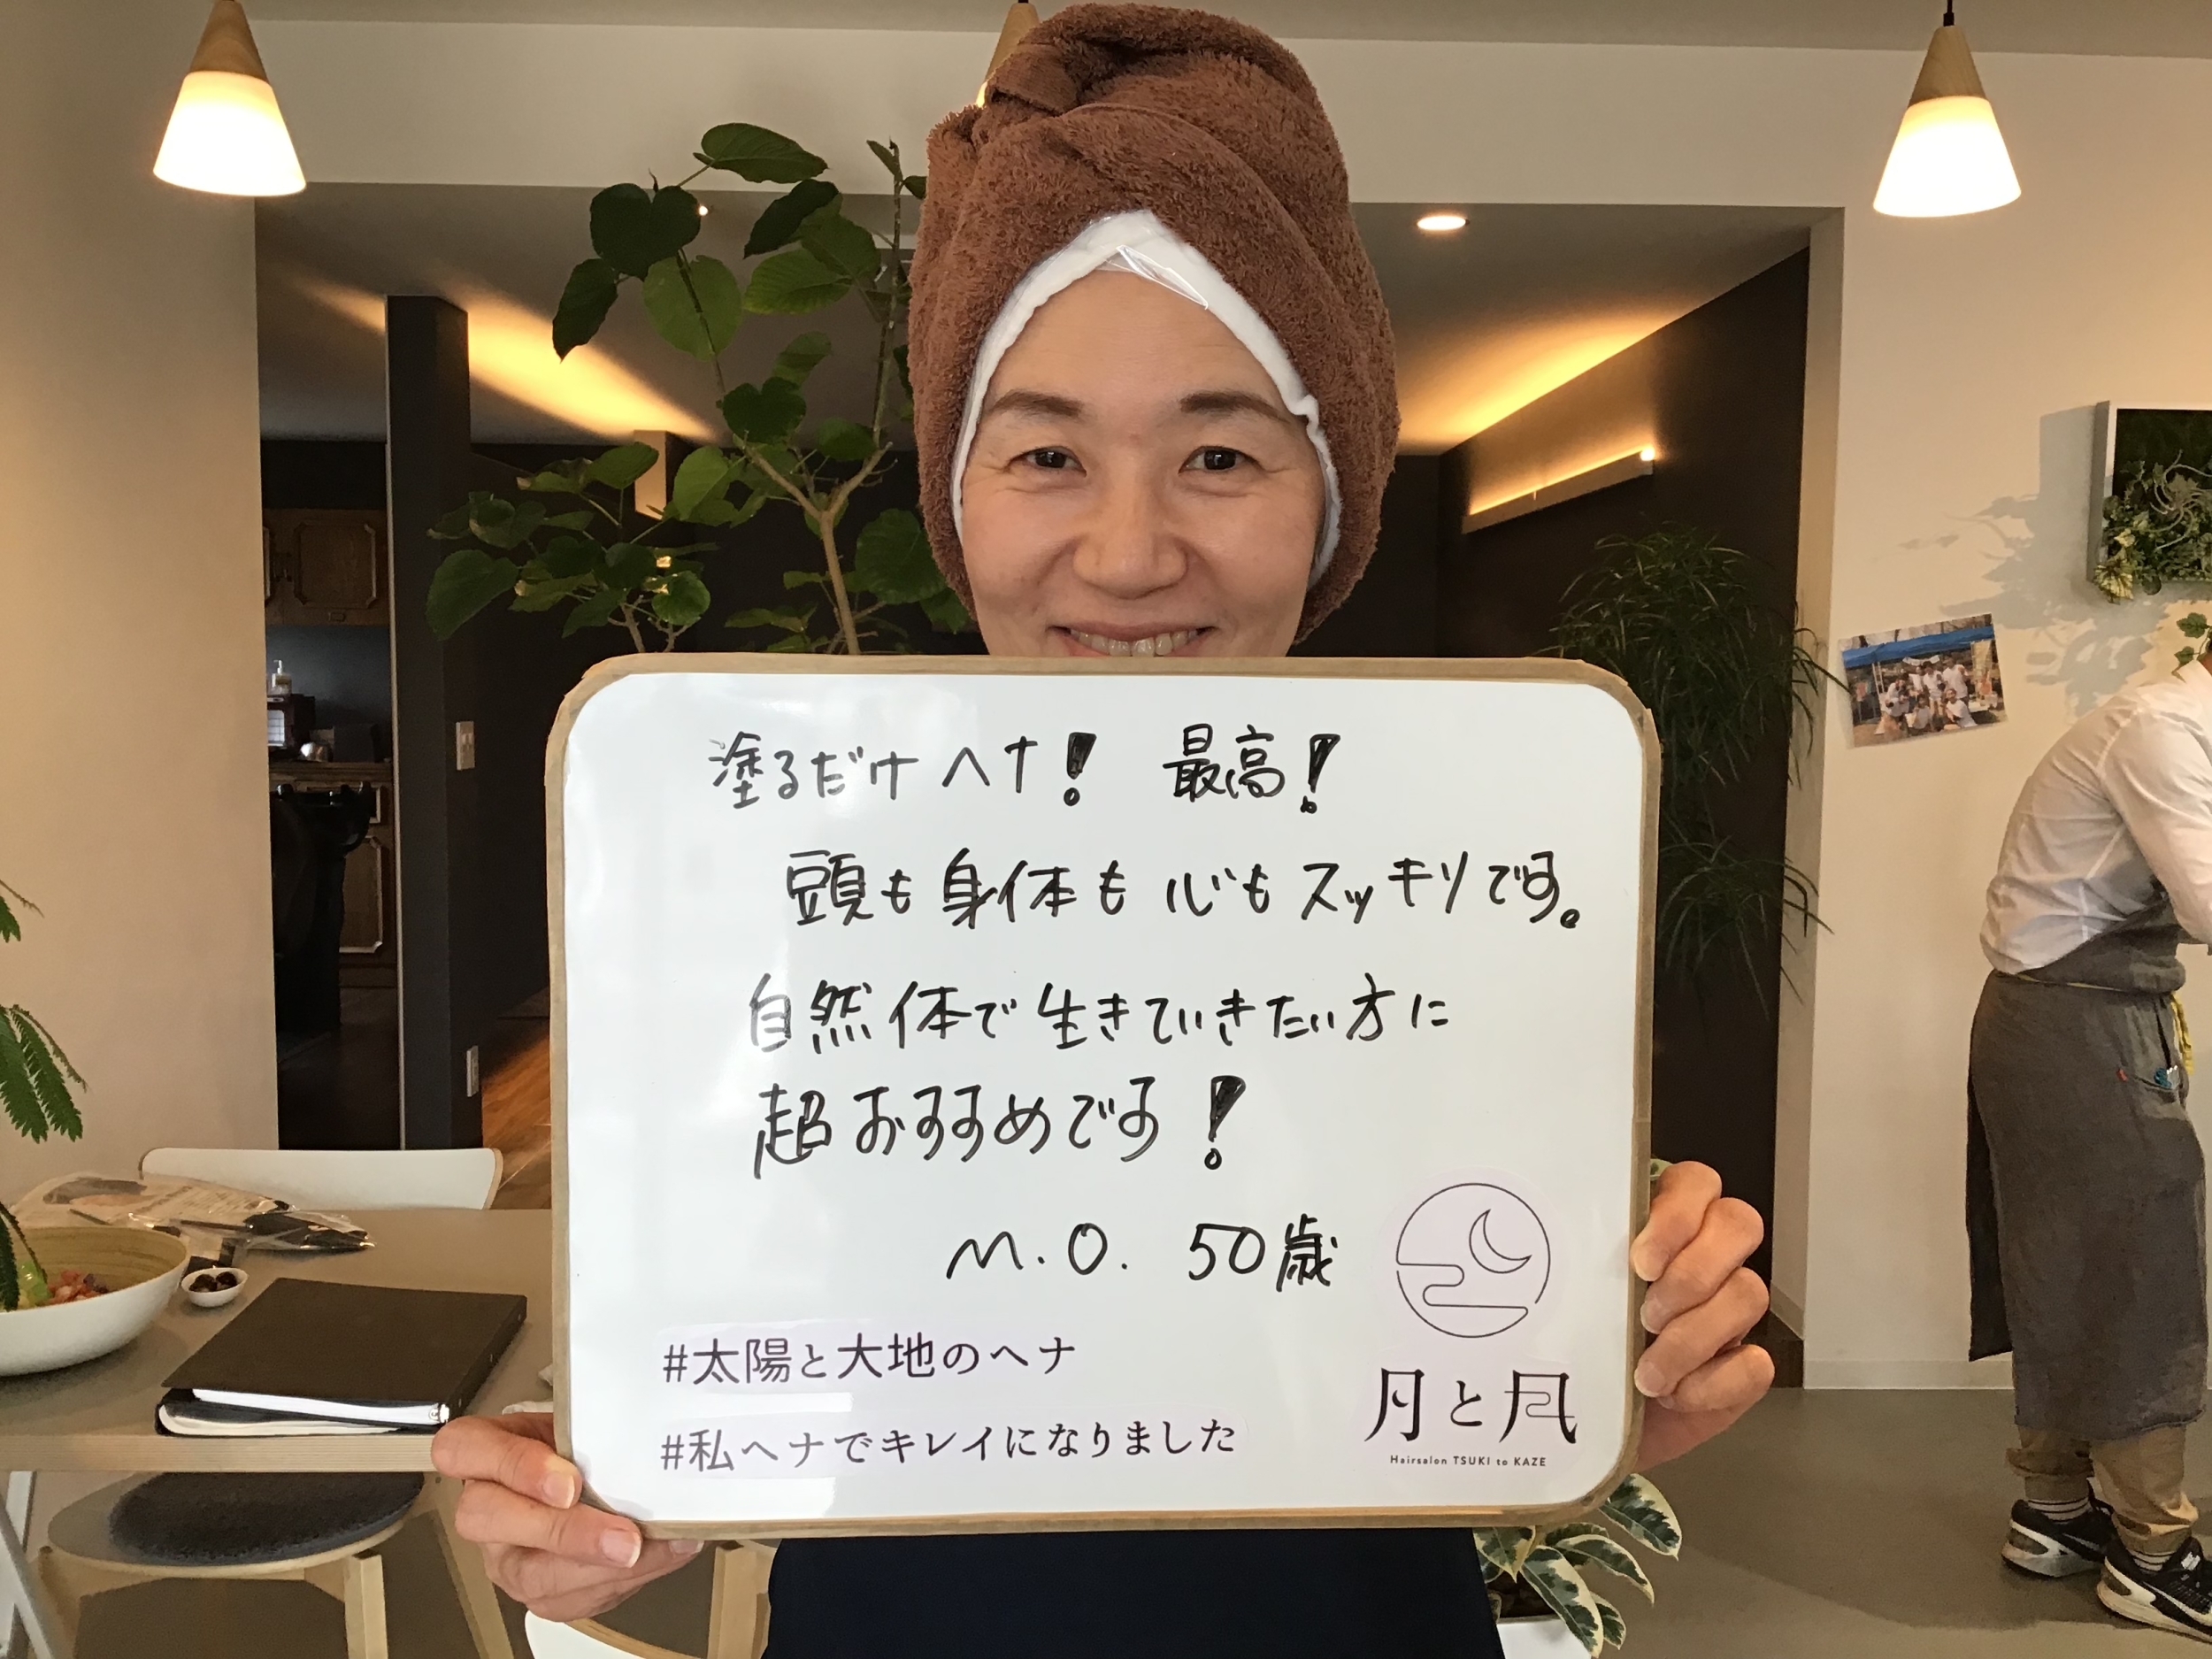 塗るだけヘナ! 最高!
頭も身体も心もスッキリです。
自然体で生きていきたい方に
超おすすめです!
M.O. 50歳
#太陽と大地のヘナ
#私ヘナでキレイになりました
月と風
Hairsalon TSUKI to KAZE